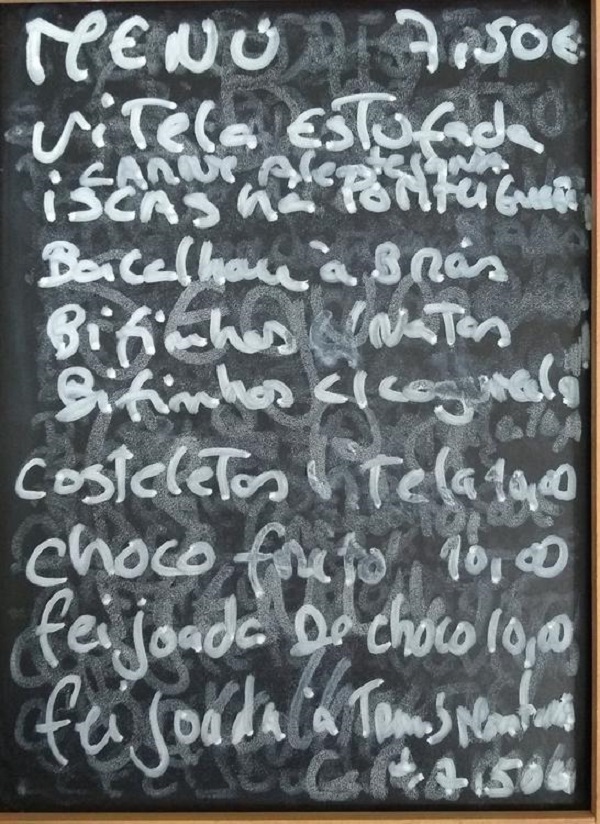 MENU 7,50€
Vitela Estufada
CARNE Alentejana
iscas na Portuguesa
Bacalhau à Brás
Bifinhos c/ Natas
Bifinhos c/ cogumelo
costeletas Tela 10,00
choco frito 10,00
feijoada De choco 10,00
feijoada à Transmontana
7,50€